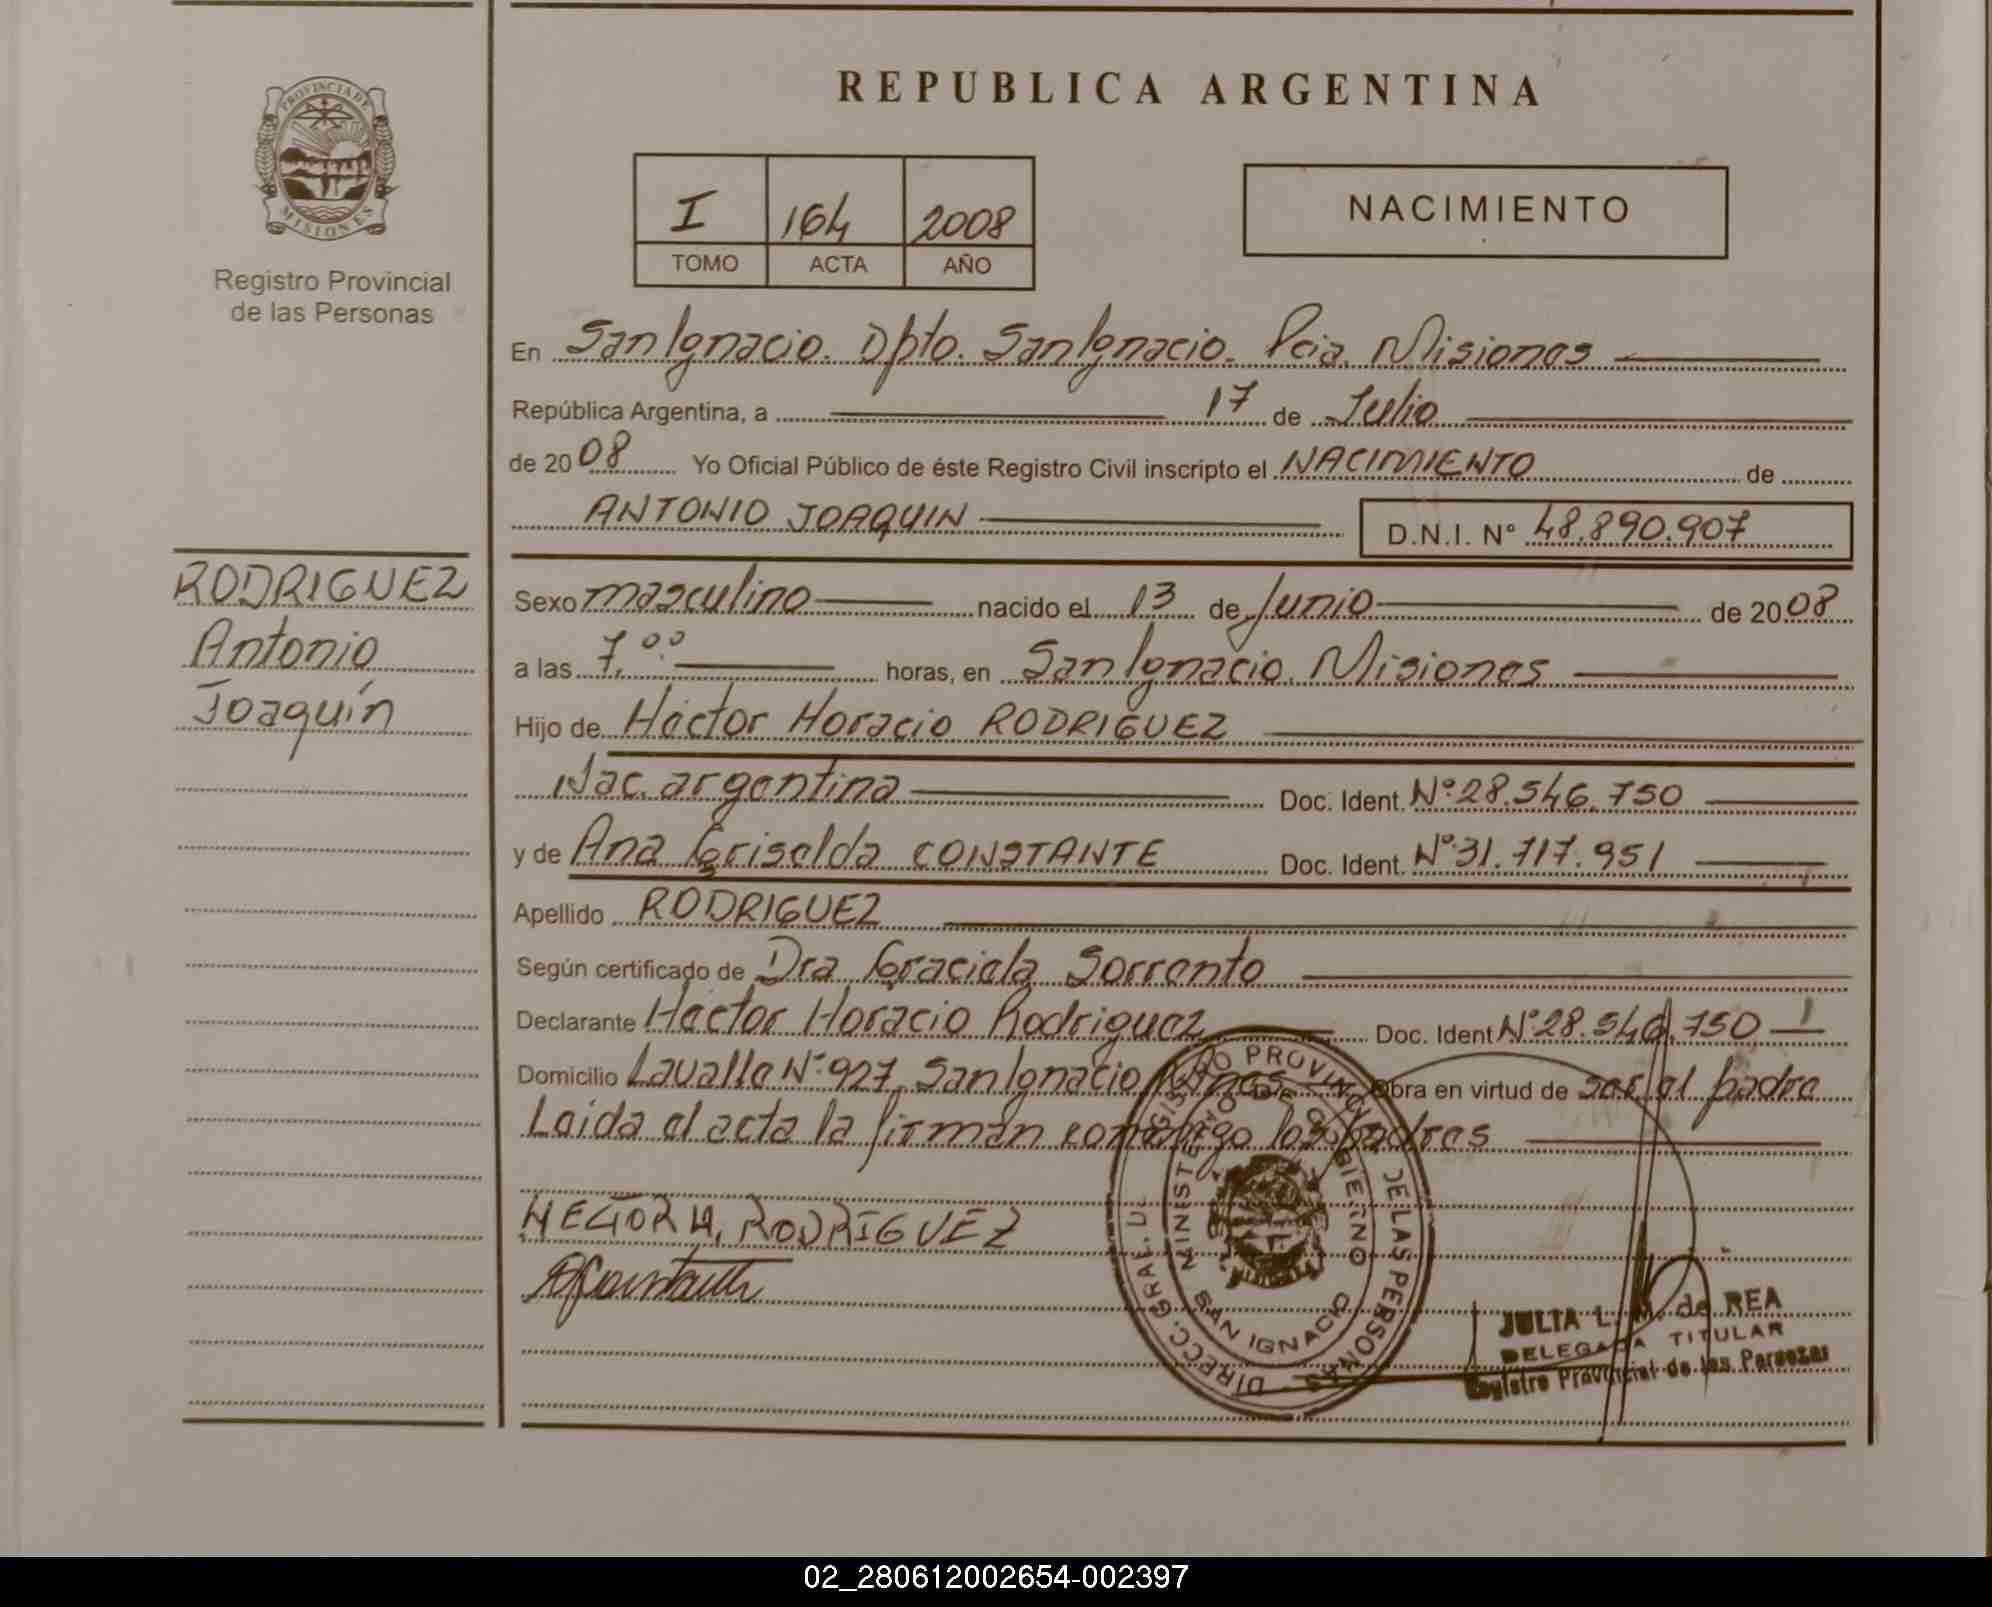 PROVINCIA DE
MISIONES
Registro Provincial
de las Personas
RODRIGUEZ
Antonio
Joaquín
REPUBLICA ARGENTINA
I 164 2008
TOMO ACTA AÑO
NACIMIENTO
En San Ignacio. Dpto. San Ignacio. Pcia. Misiones
República Argentina, a 17 de Julio
de 2008 Yo Oficial Público de éste Registro Civil inscripto el NACIMIENTO de
ANTONIO JOAQUIN D.N.I. N° 48.890.907
Sexo masculino nacido el 13 de Junio de 2008
a las 7,00 horas, en San Ignacio. Misiones
Hijo de Héctor Horacio RODRIGUEZ
Nac. argentina Doc. Ident. N° 28.546.750
y de Ana Griselda CONSTANTE Doc. Ident. N° 31.717.951
Apellido RODRIGUEZ
Según certificado de Dra Graciela Sorrento
Declarante Hector Horacio Rodriguez Doc. Ident N° 28.546.750
Domicilio Lavalle N° 927. San Ignacio Obra en virtud de ser el padre
Leida el acta la firman conmigo los padres
HECTOR H. RODRIGUEZ
REGISTRO PROVINCIAL DE LAS PERSONAS
MINISTERIO DE GOBIERNO
SAN IGNACIO
JULIA L. M. de REA
DELEGADA TITULAR
Registro Provincial de las Personas
02_280612002654-002397